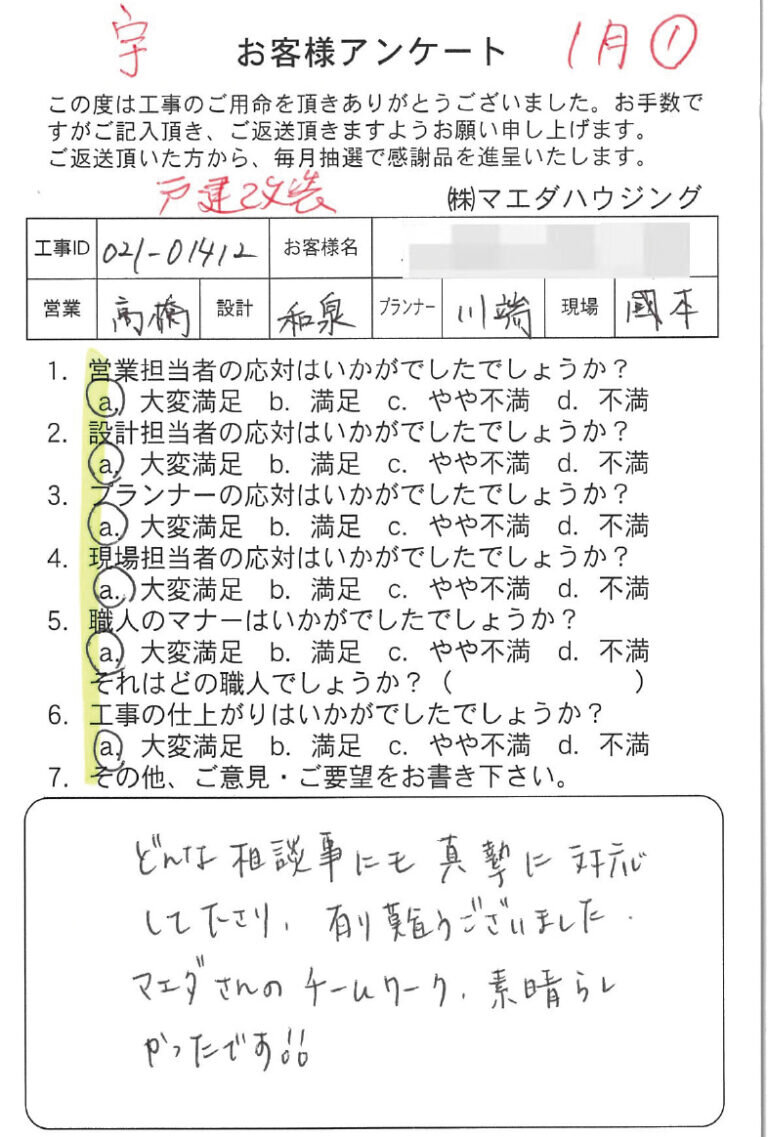 宇
お客様アンケート
1月①
この度は工事のご用命を頂きありがとうございました。お手数で
すがご記入頂き、ご返送頂きますようお願い申し上げます。
ご返送頂いた方から、毎月抽選で感謝品を進呈いたします。
戸建改装
㈱マエダハウジング
工事ID 021-01412 お客様名
営業 高橋 設計 和泉 プランナー 川端 現場 國本
1. 営業担当者の応対はいかがでしたでしょうか?
a. 大変満足 b. 満足 c. やや不満 d. 不満
2. 設計担当者の応対はいかがでしたでしょうか?
a. 大変満足 b. 満足 c. やや不満 d. 不満
3. プランナーの応対はいかがでしたでしょうか?
a. 大変満足 b. 満足 c. やや不満 d. 不満
4. 現場担当者の応対はいかがでしたでしょうか?
a. 大変満足 b. 満足 c. やや不満 d. 不満
5. 職人のマナーはいかがでしたでしょうか?
a. 大変満足 b. 満足 c. やや不満 d. 不満
それはどの職人でしょうか?( )
6. 工事の仕上がりはいかがでしたでしょうか?
a. 大変満足 b. 満足 c. やや不満 d. 不満
7. その他、ご意見・ご要望をお書き下さい。
どんな相談事にも真摯に対応
して下さり、有り難うございました.
マエダさんのチームワーク、素晴らし
かったです!!